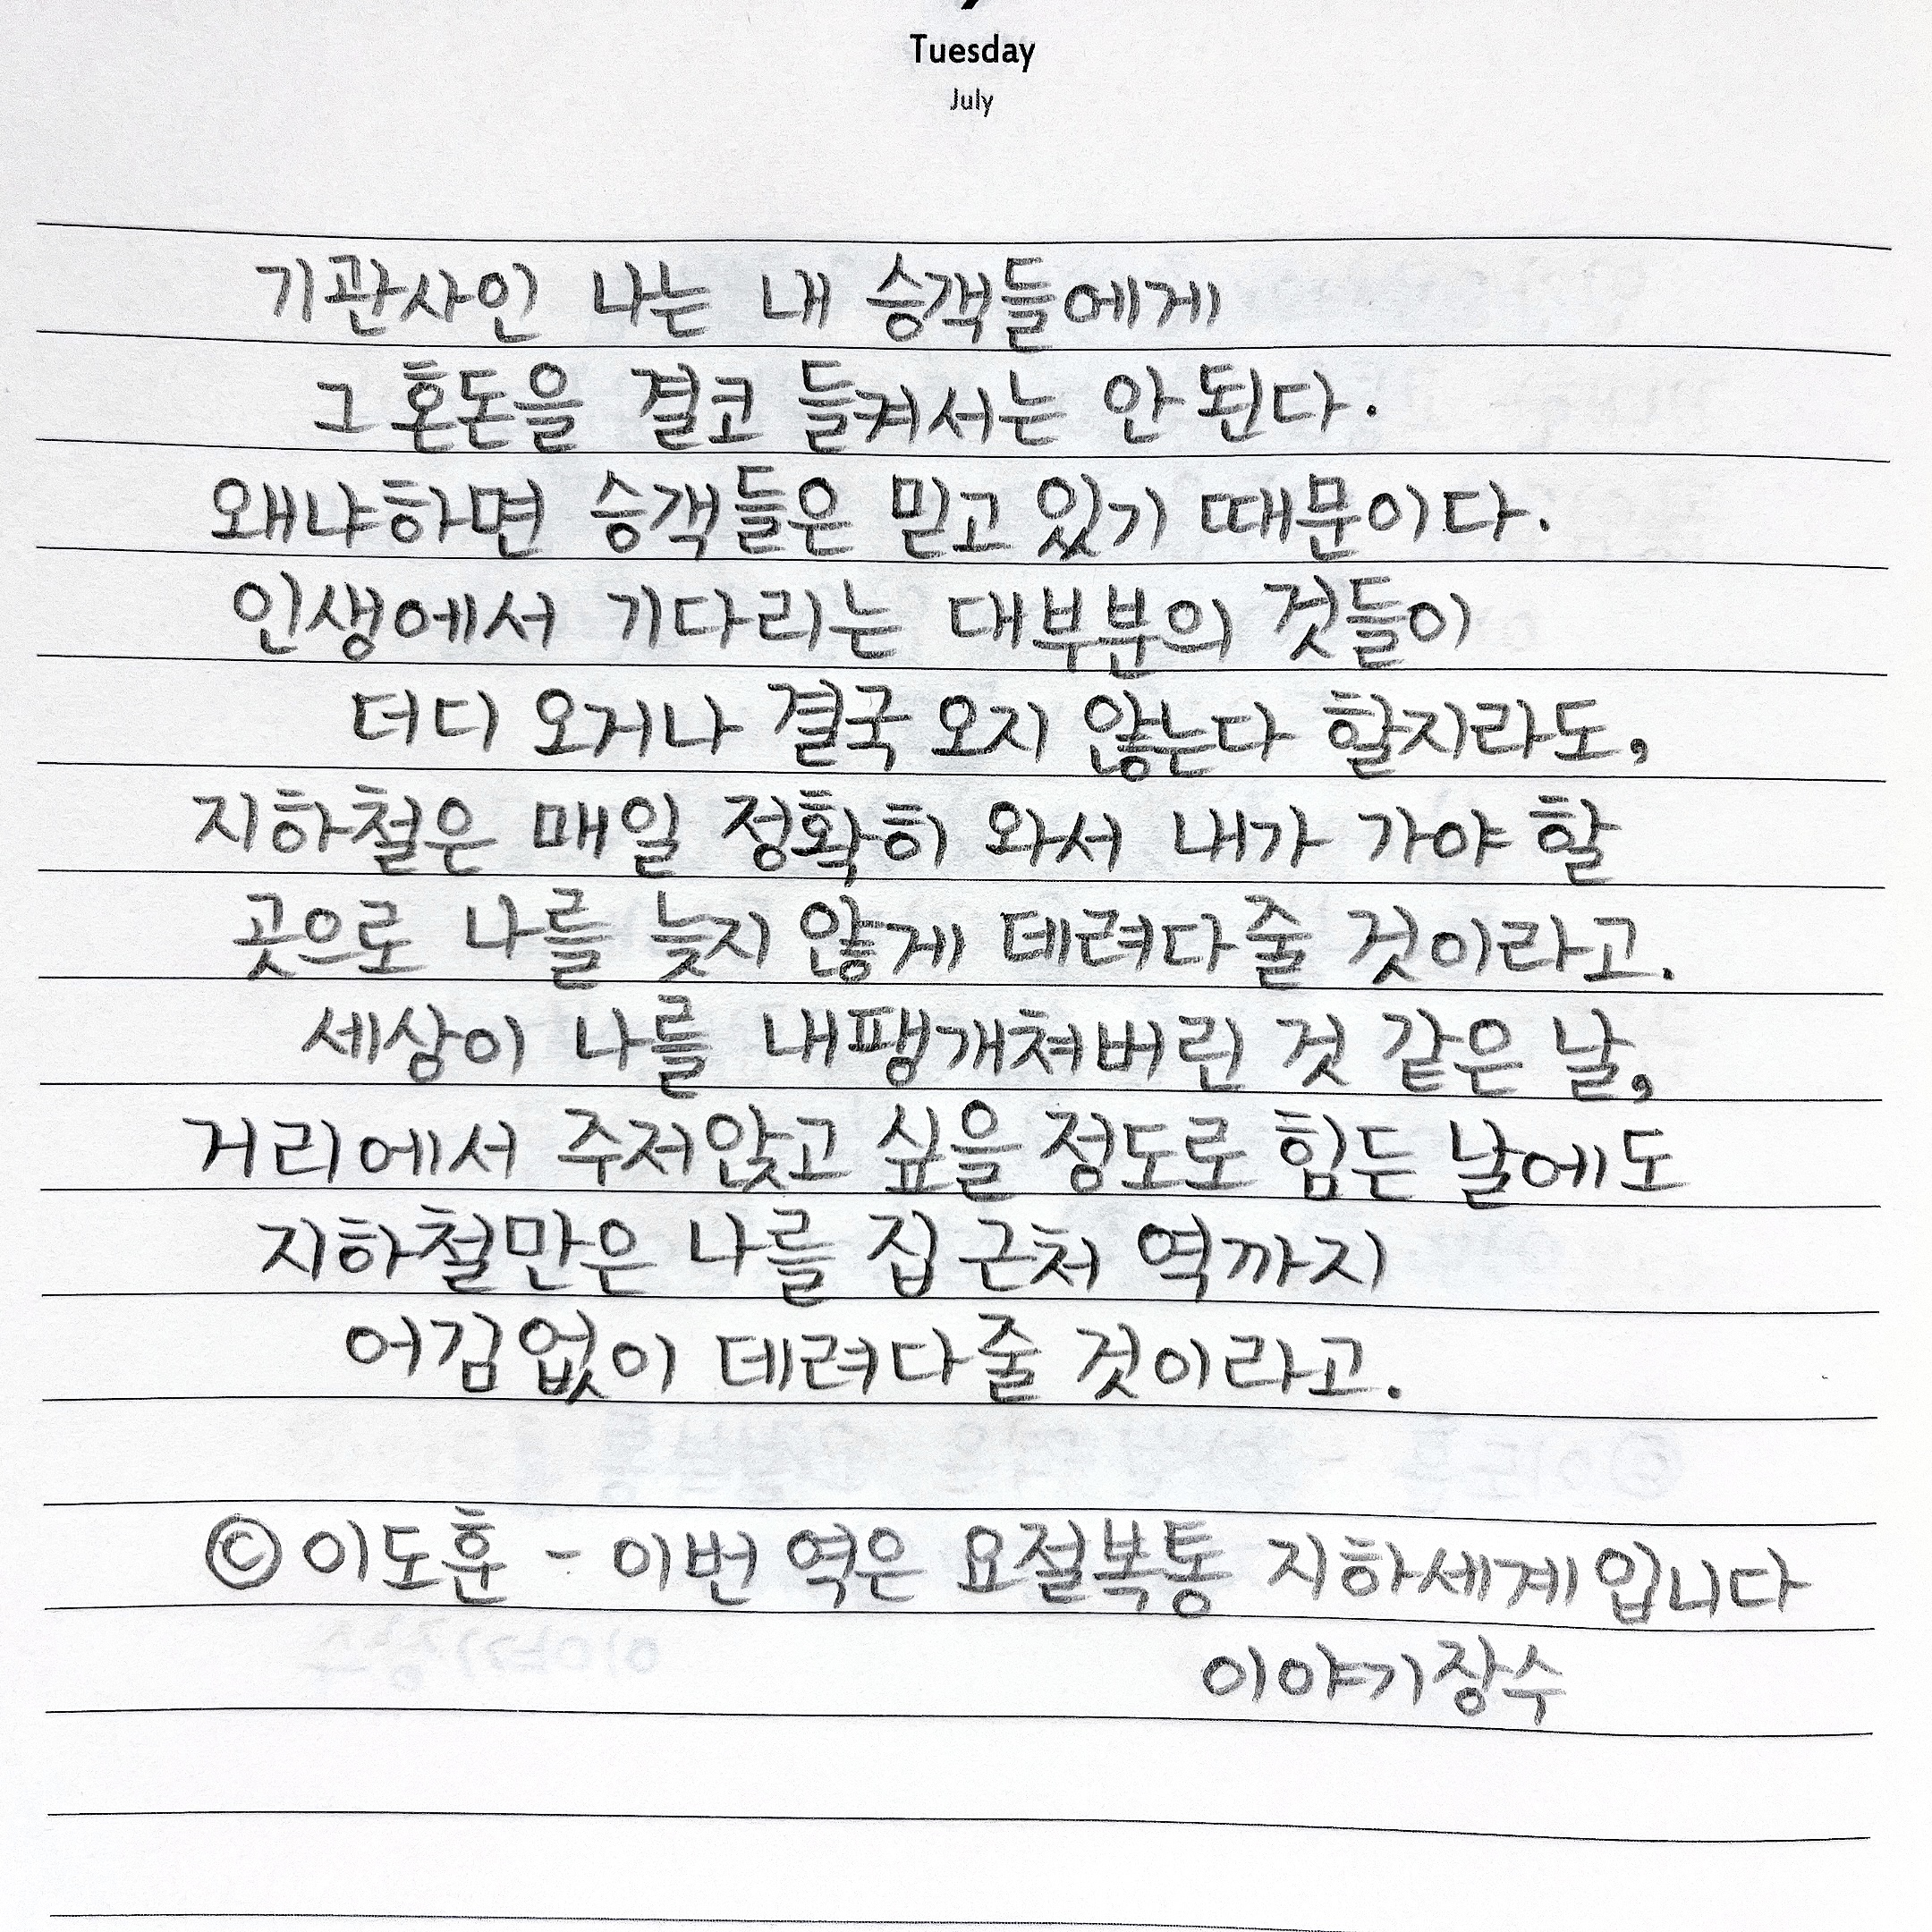 Tuesday
July
기관사인 나는 내 승객들에게
그 혼돈을 결코 들켜서는 안 된다.
왜냐하면 승객들은 믿고 있기 때문이다.
인생에서 기다리는 대부분의 것들이
더디 오거나 결국 오지 않는다 할지라도,
지하철은 매일 정확히 와서 내가 가야 할
곳으로 나를 늦지 않게 데려다줄 것이라고.
세상이 나를 내팽개쳐버린 것 같은 날,
거리에서 주저앉고 싶을 정도로 힘든 날에도
지하철만은 나를 집 근처 역까지
어김없이 데려다줄 것이라고.
© 이도훈 - 이번 역은 요절복통 지하세계입니다
이야기장수